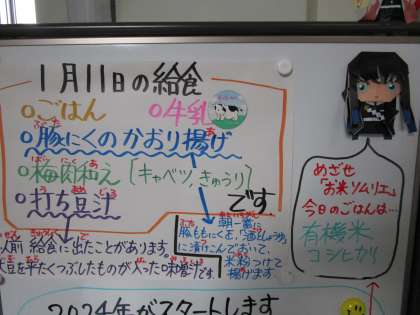 1月11日の給食
○ごはん ○牛乳
○豚にくのかおり揚げ
○梅肉和え〔キャベツ,きゅうり〕
○打ち豆汁
です
以前 給食に出たことがあります。
大豆を平たくつぶしたものが入った味噌汁です。
朝一番に
豚ももにくを「酒としょうゆ」
に漬けこんでおいて、
米粉つけて
揚げます
めざせ
「お米ソムリエ」
今日のごはんは…
有機米
コシヒカリ
2024年がスタートします